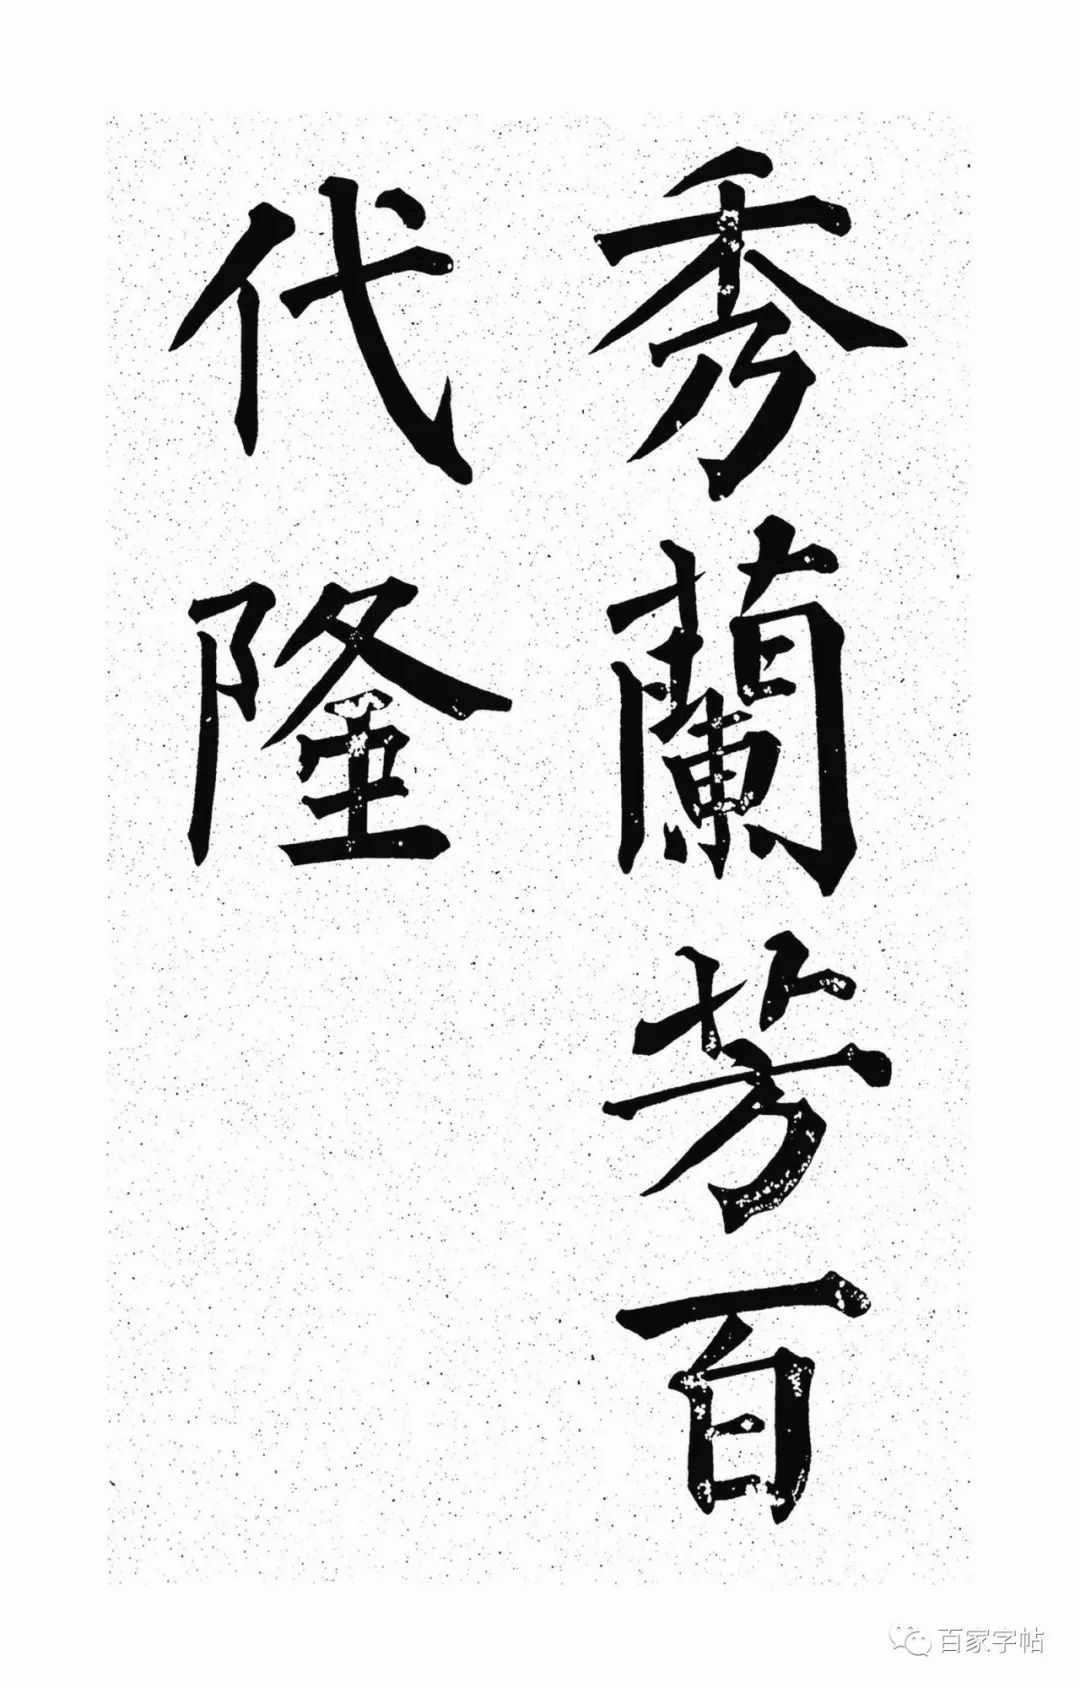 秀蘭芳百
代隆
百家字帖